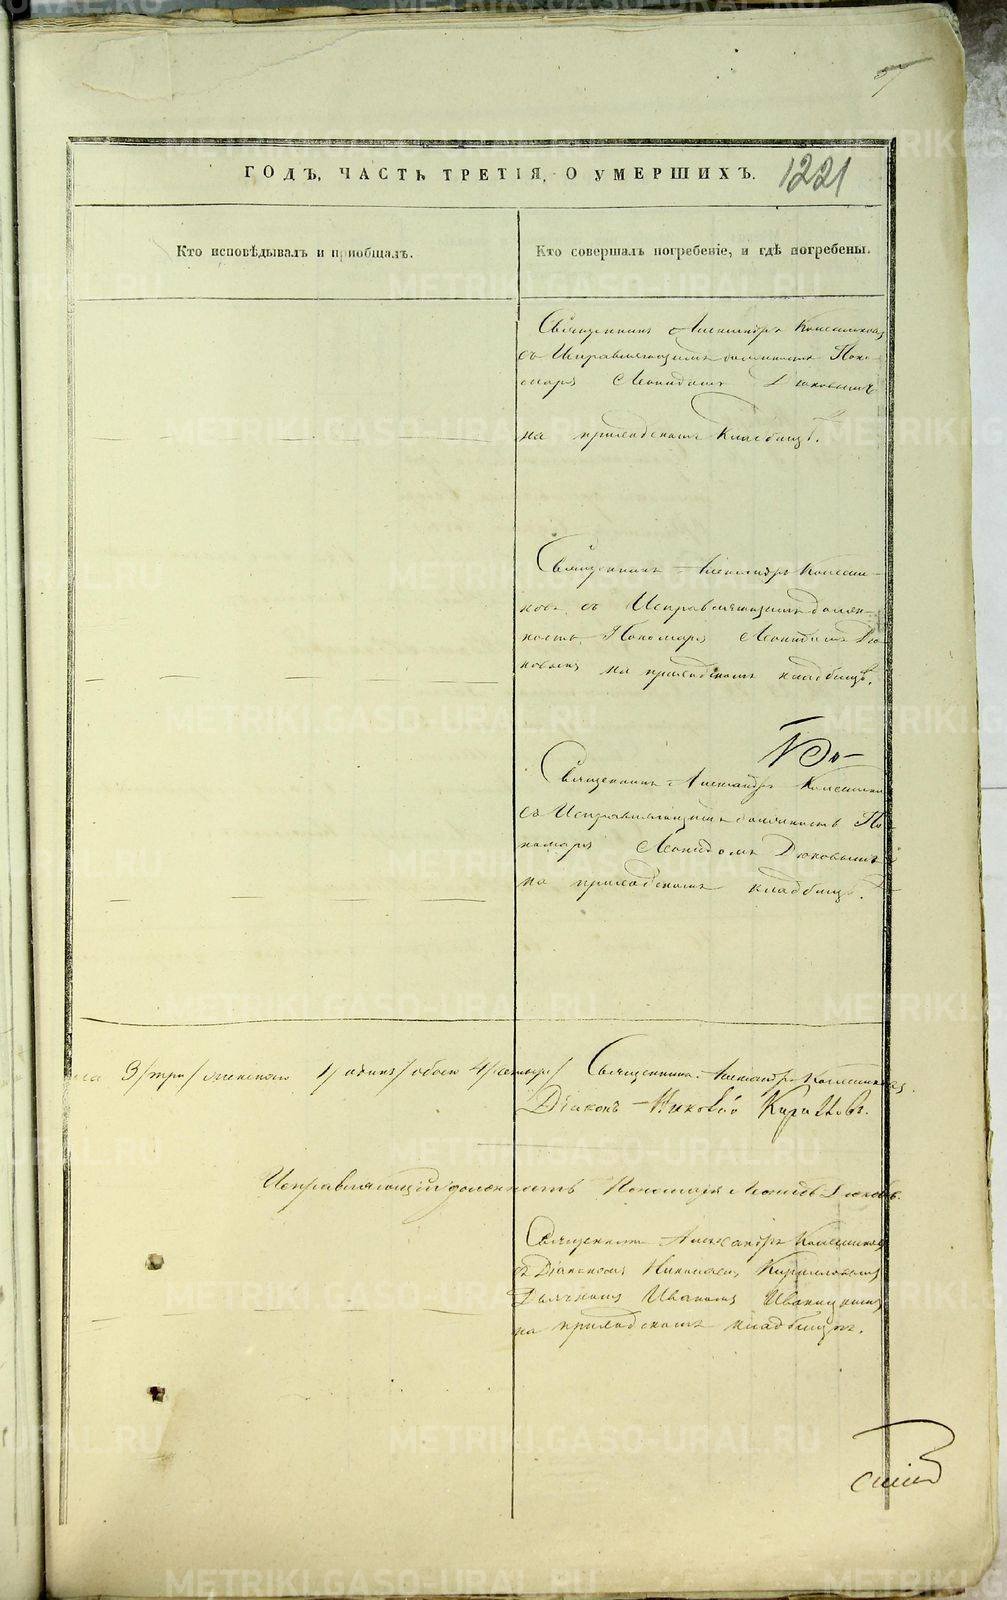 ГОДЪ, ЧАСТЬ ТРЕТІЯ, О УМЕРШИХЪ. 1221
Кто исповѣдывалъ и пріобщалъ.
Кто совершалъ погребеніе, и гдѣ погребены.
Священникъ Александръ
съ Исправляющимъ должность Поно-
маря Леонидомъ Дюковымъ
на приходскомъ Кладбищѣ.
Священникъ Александръ
съ Исправляющимъ долж-
ность Пономаря Леонидомъ Дю-
ковымъ на приходскомъ кладбищѣ.
Священникъ Александръ
съ Исправляющимъ должность По-
номаря Леонидомъ Дюковымъ
на приходскомъ кладбищѣ.
3/три/ женскаго 1/одинъ/ обоего 4/четыре/ Священникъ Александръ
Діаконъ Николай Кирилловъ.
Исправляющій должность Пономаря Леонидъ Дюковъ.
Священникъ Александръ
съ Діакономъ Николаемъ Кирилловымъ
Дьячкомъ Иваномъ
на приходскомъ кладбищѣ.
METRIKI.GASO-URAL.RU